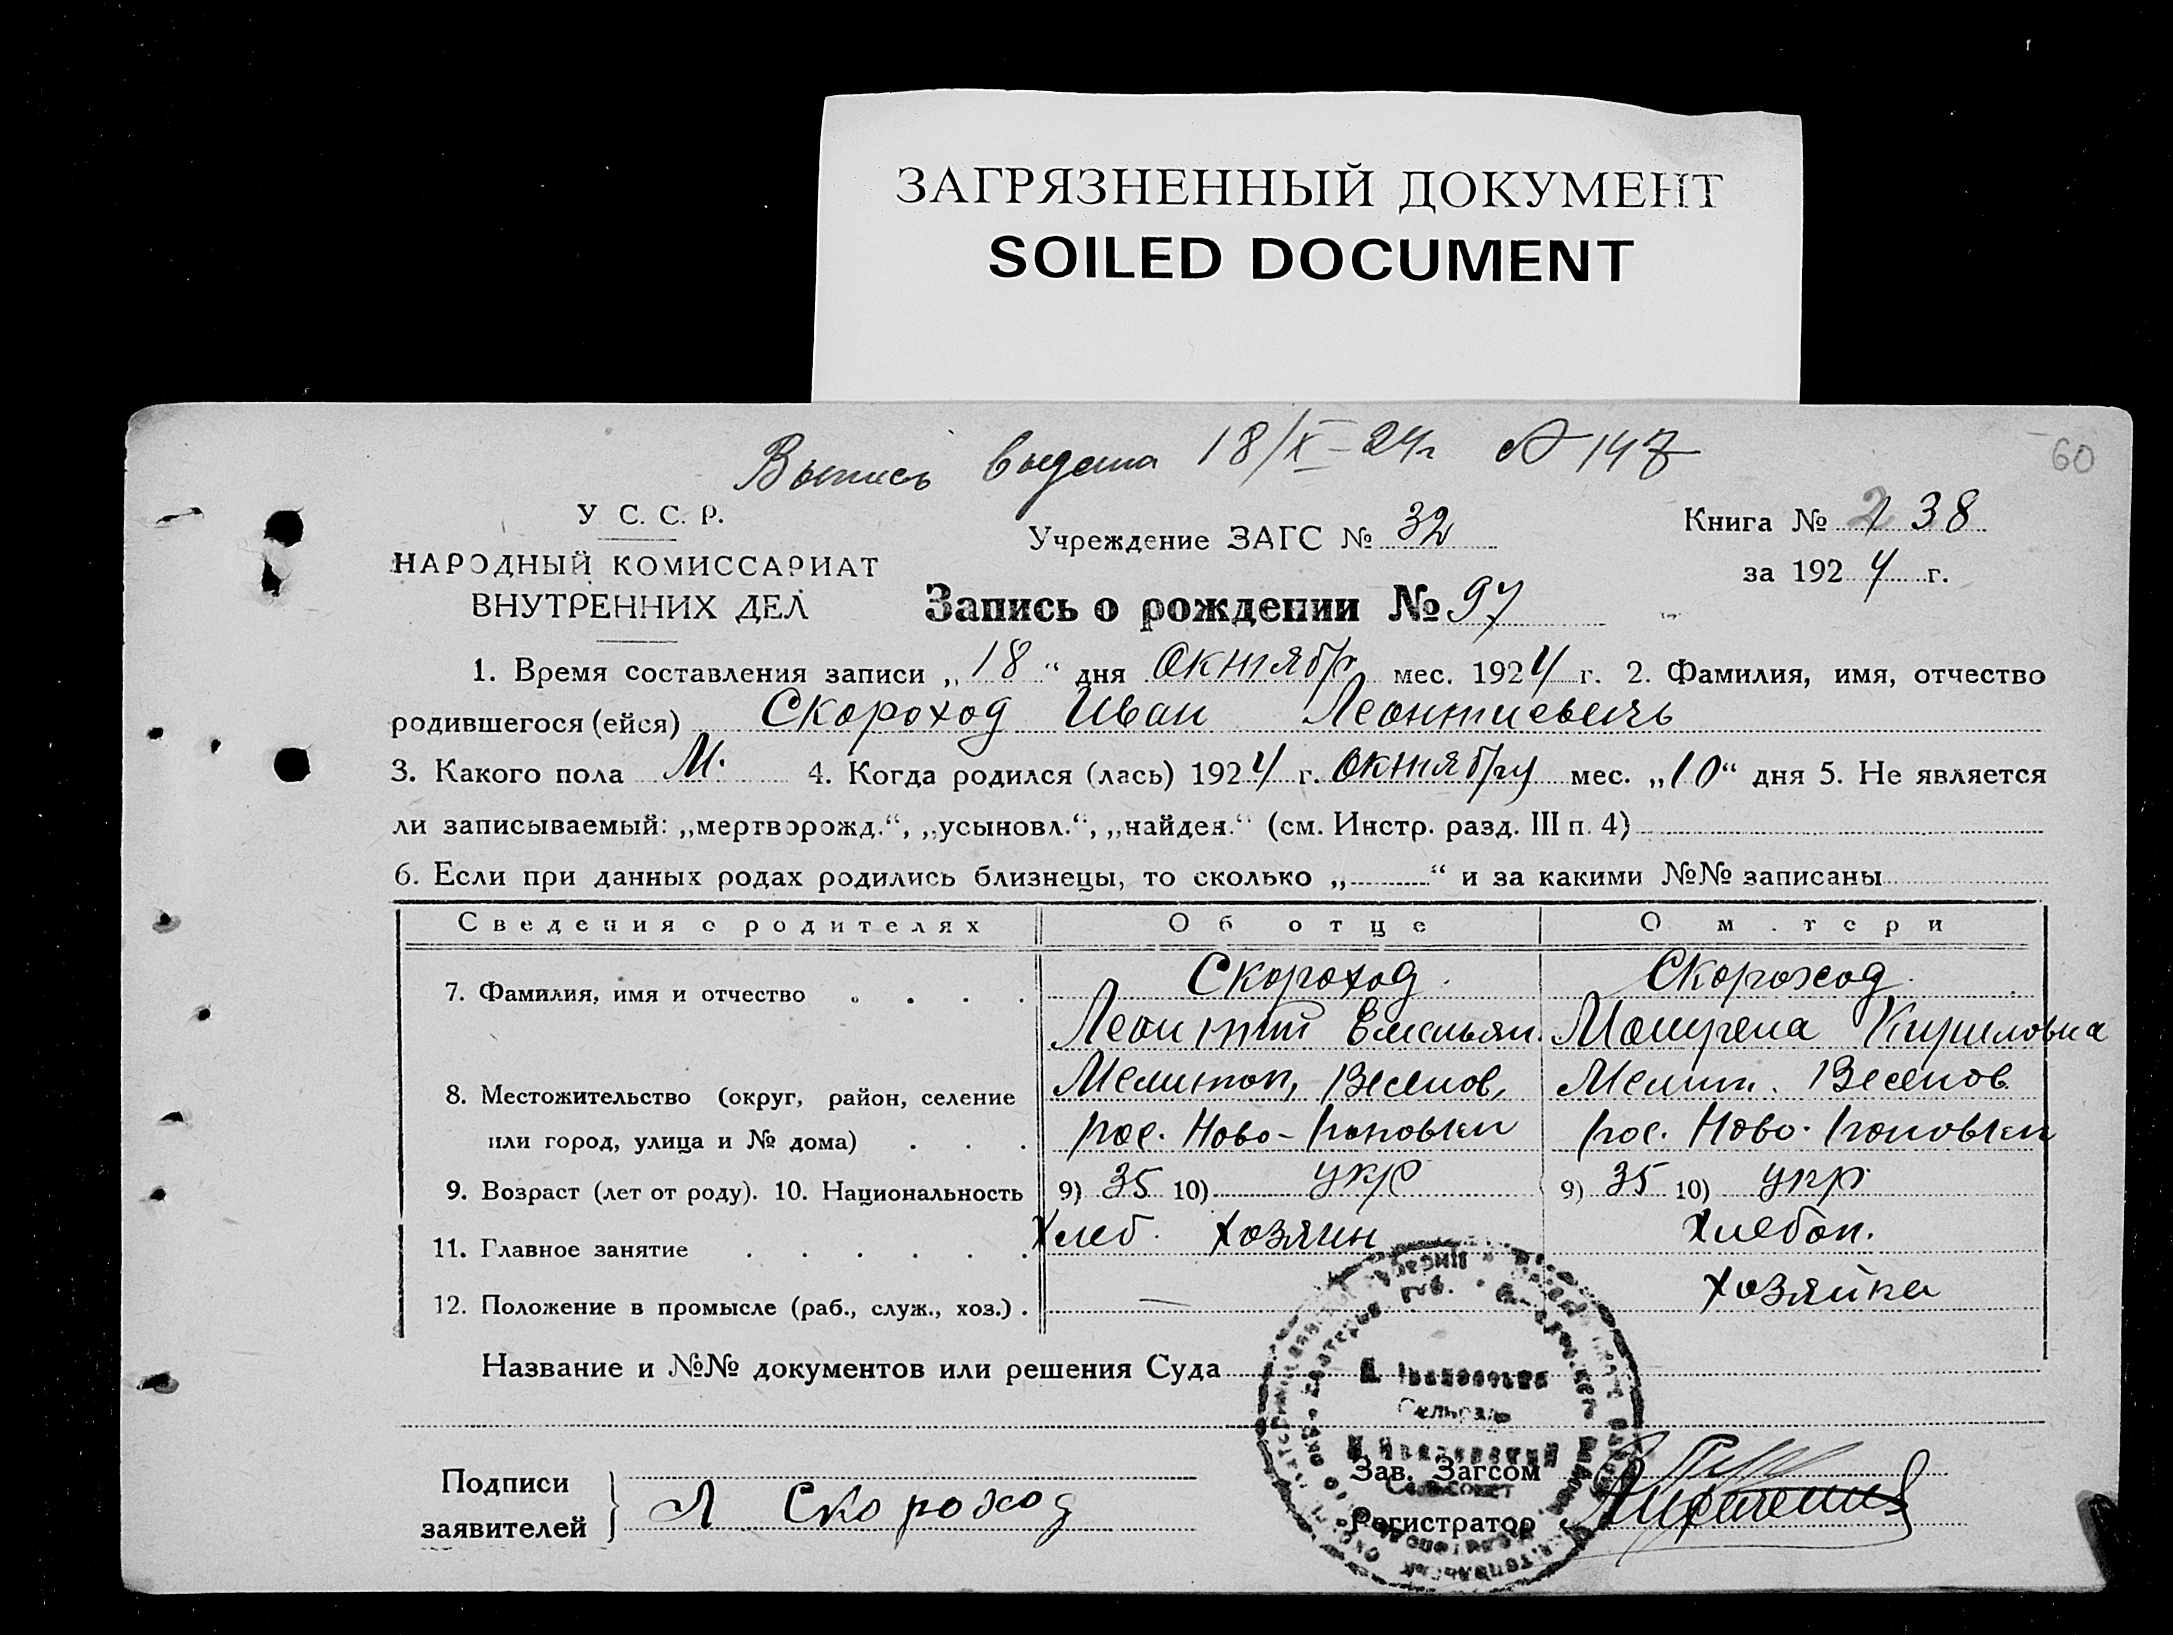 ЗАГРЯЗНЕННЫЙ ДОКУМЕНТ
SOILED DOCUMENT
60
Выпись выдана 18/X-24г № 147
У С. С. Р.
НАРОДНЫЙ КОМИССАРИАТ
ВНУТРЕННИХ ДЕЛ
Учреждение ЗАГС № 32
Книга № 38
за 1924 г.
Запись о рождении № 97
1. Время составления записи „18“ дня октябр мес. 1924 г. 2. Фамилия, имя, отчество
родившегося (ейся) Скороход Иван Леонтиевичь
3. Какого пола М. 4. Когда родился (лась) 1924 г. октября мес. „10“ дня 5. Не является
ли записываемый: „мертворожд.“, „усыновл.“, „найден.“ (см. Инстр. разд. III п. 4)
6. Если при данных родах родились близнецы, то сколько „ “ и за какими №№ записаны
Сведения о родителях Об отце О м тери
7. Фамилия, имя и отчество Скороход Скороход
Леонтий Емельян. Кириловна
8. Местожительство (округ, район, селение Мелитоп, Веселов, Мелит. Веселов
или город, улица и № дома) пос. Ново- пос. Ново-
9. Возраст (лет от роду). 10. Национальность 9) 35 10) укр 9) 35 10) укр
11. Главное занятие Хлеб. хозяин Хлебоп.
12. Положение в промысле (раб., служ., хоз.) — хозяйка
Название и №№ документов или решения Суда
Подписи
заявителей Л Скороход
Зав. Загсом
Регистратор